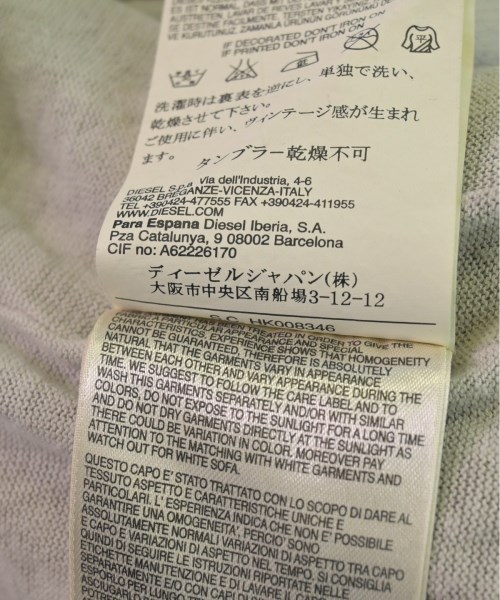 IST NORMAL. DASS MIT DE
AUSTRETEN. LAVAR DE REVES LAVAR
SE DESTINE FACILMENTE. TERSTEN YIKAYIN
VE KURUTUNUZ. ZAMANLA ÜRÜNÜN GÖRÜNÜMÜ DE
IF DECORATED DON'T IRON ON
IF PRINTED DON'T IRON ON
平
単独で洗い、
洗濯時は裏表を逆にし、
乾燥させて下さい。
ご使用に伴い、ヴィンテージ感が生まれ
ます。 タンブラー乾燥不可
DIESEL S.p.a via dell'Industria, 4-6
36042 BREGANZE-VICENZA-ITALY
TEL +390424-477555 FAX +390424-411955
WWW.DIESEL.COM
Para Espana Diesel Iberia, S.A.
Pza Catalunya, 9 08002 Barcelona
CIF no: A62226170
ディーゼルジャパン(株)
大阪市中央区南船場3-12-12
S.C. HK008346
TREATED IN ORDER TO GIVE THE
A PARTICULAR APPEARANCE AND SPECIAL
CHARACTERISTICS. EXPERIENCE SHOWS THAT HOMOGENEITY
CANNOT BE GUARANTEED, THEREFORE IS ABSOLUTELY
NATURAL THAT THE GARMENTS VARY IN APPEARANCE
BETWEEN EACH OTHER AND VARY APPEARANCE DURING THE
TIME. WE SUGGEST TO FOLLOW THE CARE LABEL AND TO
WASH THIS GARMENTS SEPARATELY AND/OR WITH SIMILAR
COLORS, DO NOT EXPOSE TO THE SUNLIGHT FOR A LONG TIME
AND DO NOT DRY GARMENTS DIRECTLY AT THE SUNLIGHT AS
THERE COULD BE VARIATION IN COLOR. MOREOVER PAY
ATTENTION TO THE MATCHING WITH WHITE GARMENTS AND
WATCH OUT FOR WHITE SOFA.
QUESTO CAPO E' STATO TRATTATO CON LO SCOPO DI DARE AL
TESSUTO ASPETTO E CARATTERISTICHE UNICHE E
PARTICOLARI. L' ESPERIENZA INDICA CHE NON E' POSSIBILE
GARANTIRE UNA OMOGENEITA', PERCIO' SONO
ASSOLUTAMENTE NORMALI VARIAZIONI DI ASPETTO TRA CAPO
E CAPO E VARIAZIONI DI ASPETTO NEL TEMPO. SI CONSIGLIA
QUINDI DI SEGUIRE LE ISTRUZIONI RIPORTATE NELLE
ETICHETTE MANUTENZIONE E DI LAVARE IL CAPO
SEPARATAMENTE E/O CON CAPI DI
ESPORLO PER LUNGO